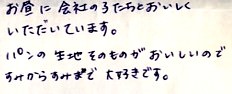 お昼に会社の子たちとおいしく
いただいています。
パンの生地そのものがおいしいので
すみからすみまで大好きです。